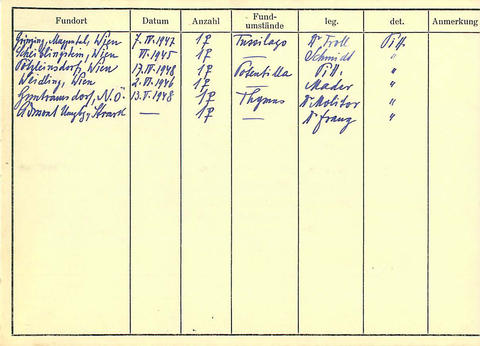 Fundort Datum Anzahl Fund-umstände leg. det. Anmerkung
Grinzing, Wien 7. IV. 1947 1♀ Tussilago Dr Troll Pitt.
Scheiblingstein, Wien VI. 1945 1♀ — Schmidt "
Pötzleinsdorf, Wien 17. IV. 1948 1♀ Potentilla Pitt. "
Weidling, Wien 2. VI. 1946 1♀ — Mader "
Guntramsdorf, N.Ö. 13. V. 1948 1♀ Thymus Dr Molitor "
Admont — 1♀ — Dr Franz "